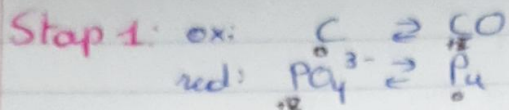 Stap 1: ox: C ⇄ CO
0 +2
red: PO₄³⁻ ⇄ P₄
0